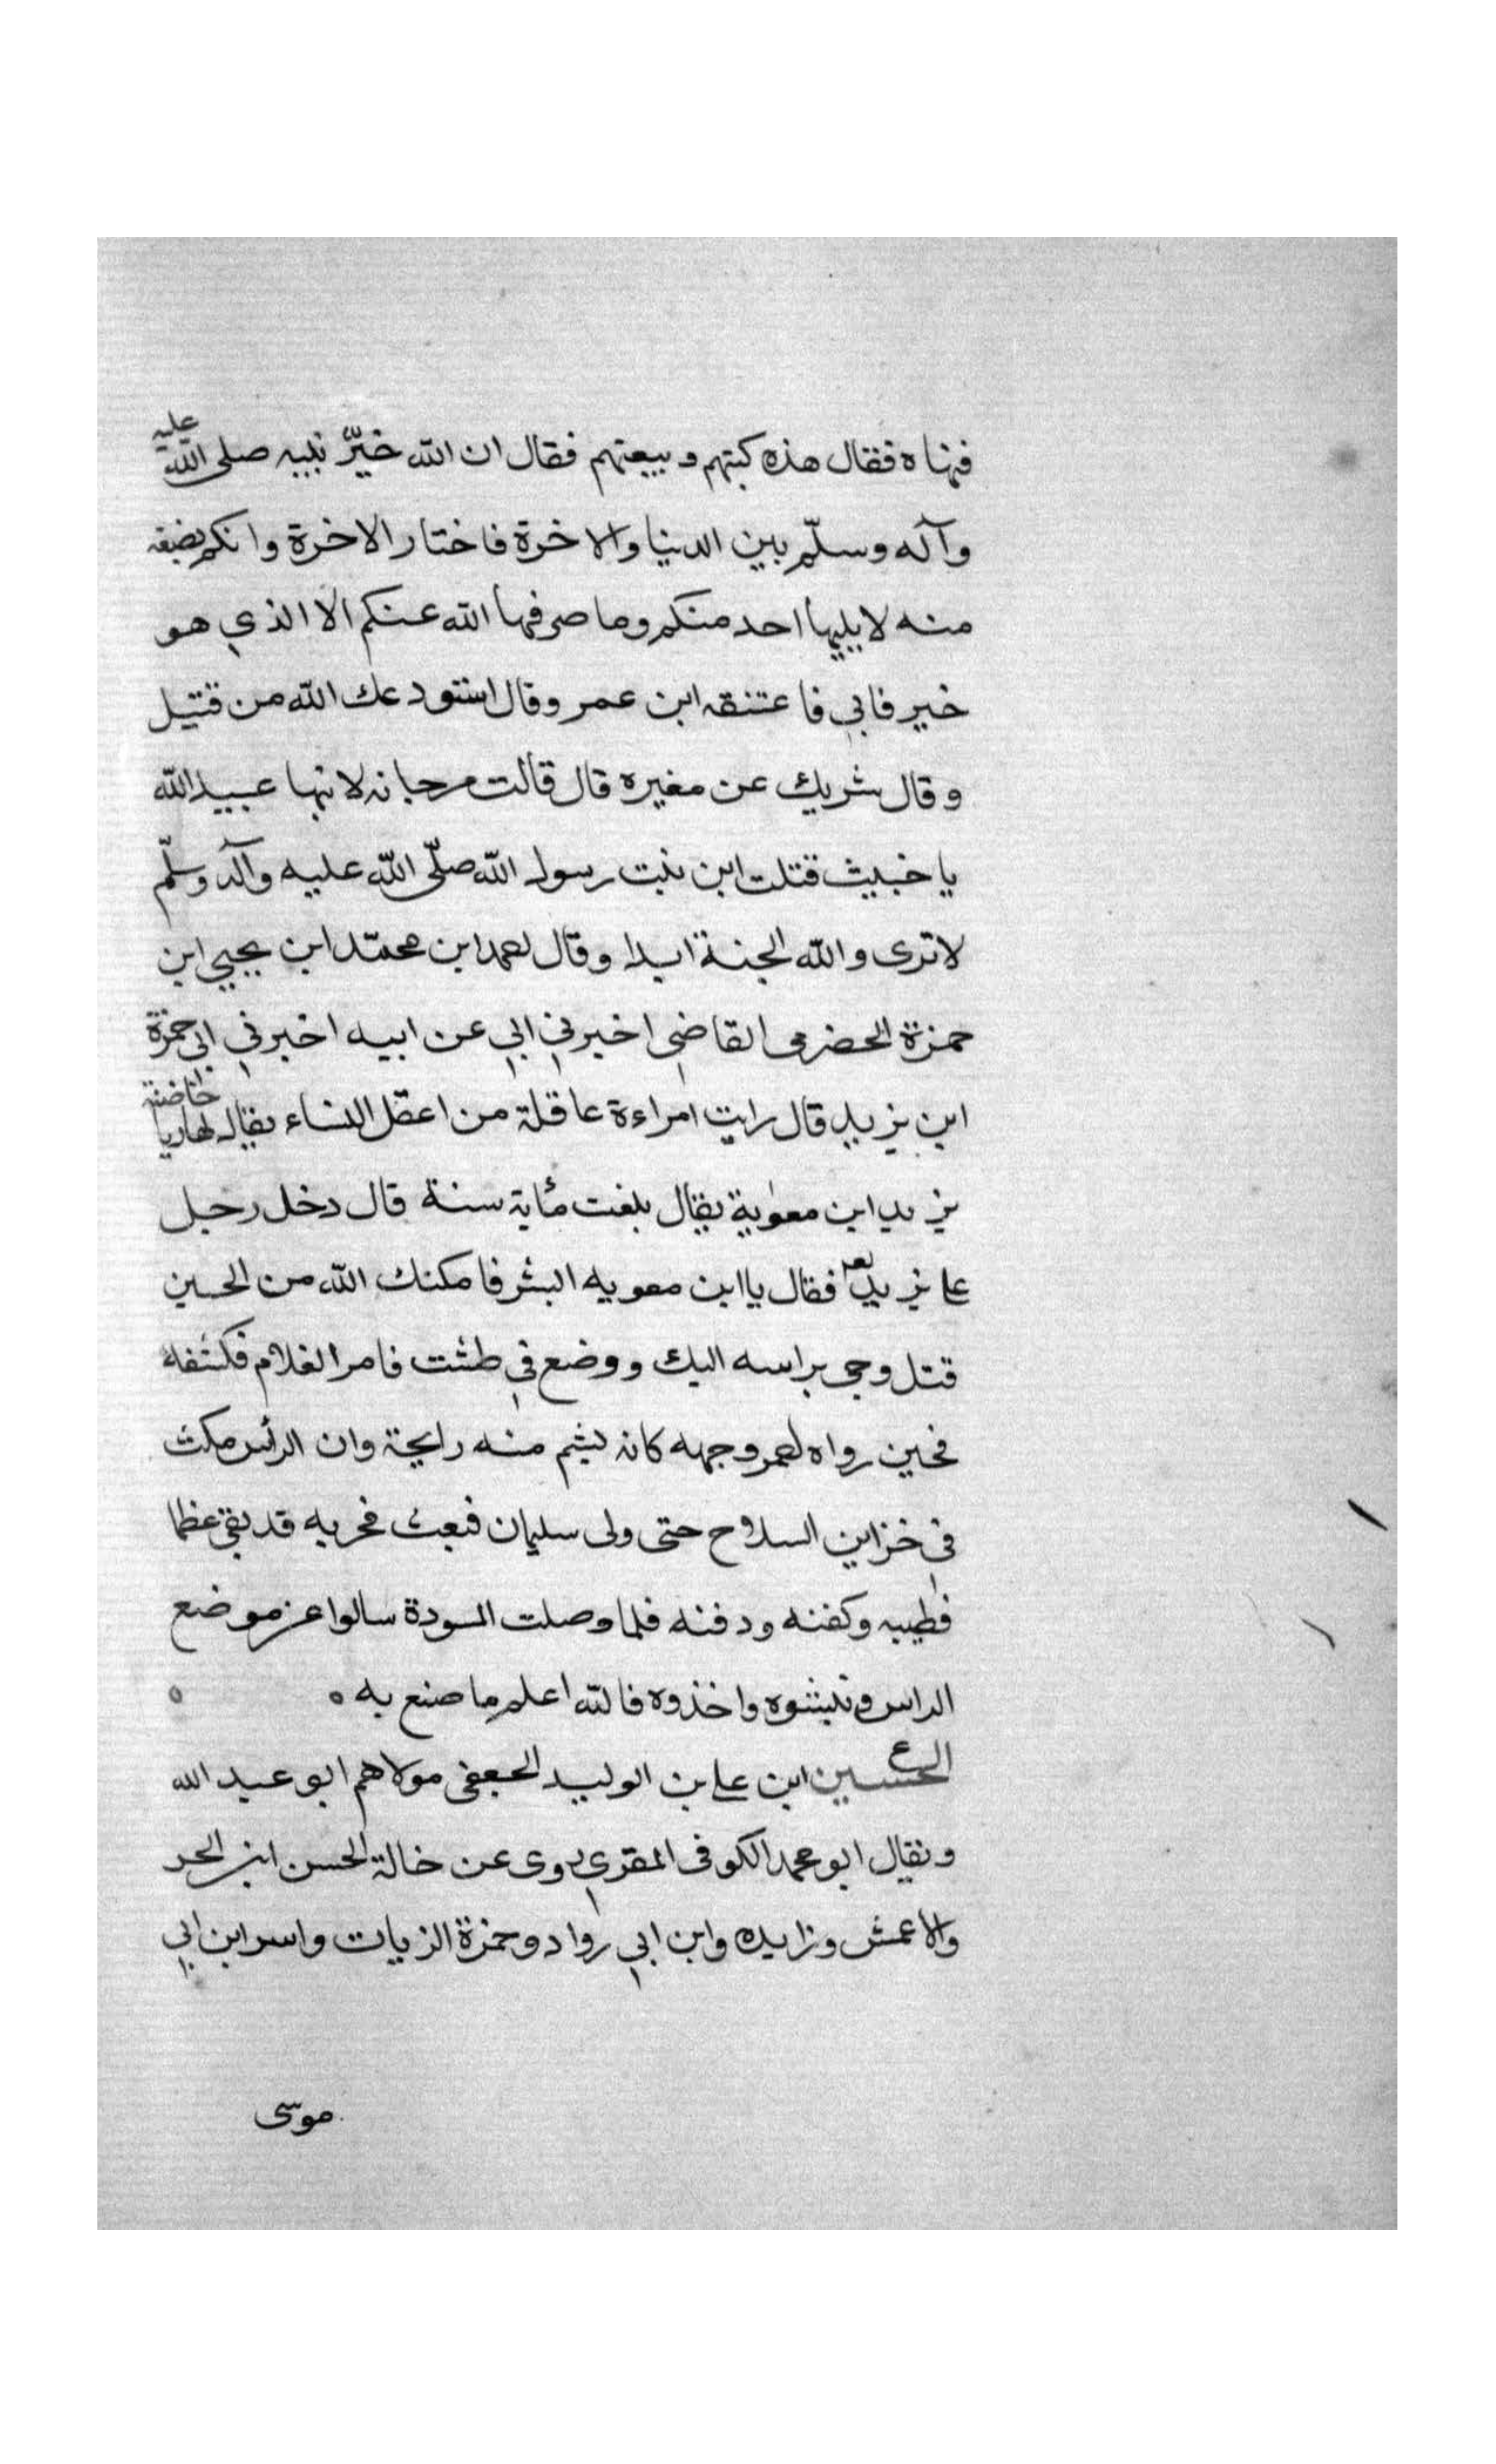 فنهاه فقال هذه كتبهم وبيعتهم فقال ان الله خيّر نبيه صلى الله عليه
وآله وسلّم بين الدنيا والاخرة فاختار الاخرة وانكم بضعه
منه لا يليها احد منكم وما صرفها الله عنكم الا الذي هو
خير فابي فاعتنقه ابن عمر وقال استودعك الله من قتيل
وقال شريك عن مغيره قال قالت مرجانه لابنها عبيد الله
يا خبيث قتلت ابن بنت رسول الله صلّى الله عليه وآله وسلّم
لا ترى والله الجنة ابدا وقال احمد ابن محمّد ابن يحيي ابن
حمزة الحضرمى القاضي اخبرني ابي عن ابيه اخبرني ابي حمزة
ابن يزيد قال رايت امراءة عاقلة من اعقل النساء يقال لها ريا حاضنة
يزيد ابن معوية يقال بلغت مئاية سنة قال دخل رجل
على يزيد فقال يا ابن معويه ابشر فامكنك الله من الحسين
قتل وجى براسه اليك ووضع في طشت فامر الغلام فكشفه
فحين رواه احمر وجهه كانه يشم منه رايحة وان الرأس مكث
في خزاين السلاح حتى ولى سليمان فبعث فجر به قد بقي عظما
فطيبه وكفنه ودفنه فلما وصلت المسودة سالوا عن موضع
الراس ونبشوه واخذوه فالله اعلم ما صنع به ه ه
ع الحسين ابن على بن الوليد الجعفى مولاهم ابو عبد الله
ويقال ابو محمد الكوفى المقري روى عن خالة الحسن ابن الحر
والاعمش وزايده وابن ابي رواد وحمزة الزيات واسر ابن ابي
موسى